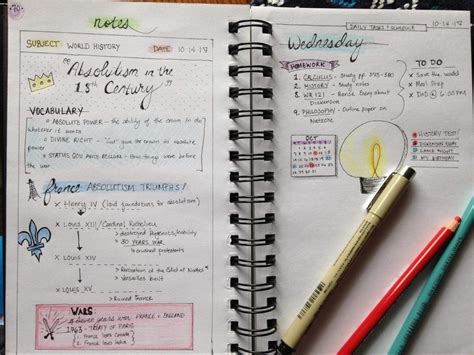 notes
SUBJECT: WORLD HISTORY DATE: 10·14·17
"Absolutism in the
18th Century"
VOCABULARY
ABSOLUTE POWER - the ability of the crown to do
whatever it wants
DIVINE RIGHT - "God" gave the crown its absolute
power
STATUS QUO ANTE BELLUM - How things were before
the war
France ABSOLUTISM TRIUMPHS!
x Henry IV (laid foundations for absolutism)
x Louis XIII / Cardinal Richelieu
> destroyed Huguenots/nobility
> 30 YEARS WAR
crushed protestants
x Louis XIV
> Revocation of the Edict of Nantes
> Versailles built
x Louis XV
> Ruined France
WARS:
Seven years war: FRANCE v ENGLAND
1763 - TREATY OF PARIS
1. France loses Canada
2. France loses India
DAILY TASKS + SCHEDULE
Wednesday 10·14·17
HOMEWORK
1. CALCULUS - Study pp.
2. HISTORY - Study notes
3. WR 121 - Revise Essay about
Dickinson
4. PHILOSOPHY - Outline paper on
Nietzsche
TO DO
Save the world
Meal Prep
DnD @ 6:00 PM
OCT
HISTORY TEST!
DICKINSON ESSAY
DANCE NIGHT
MY BIRTHDAY